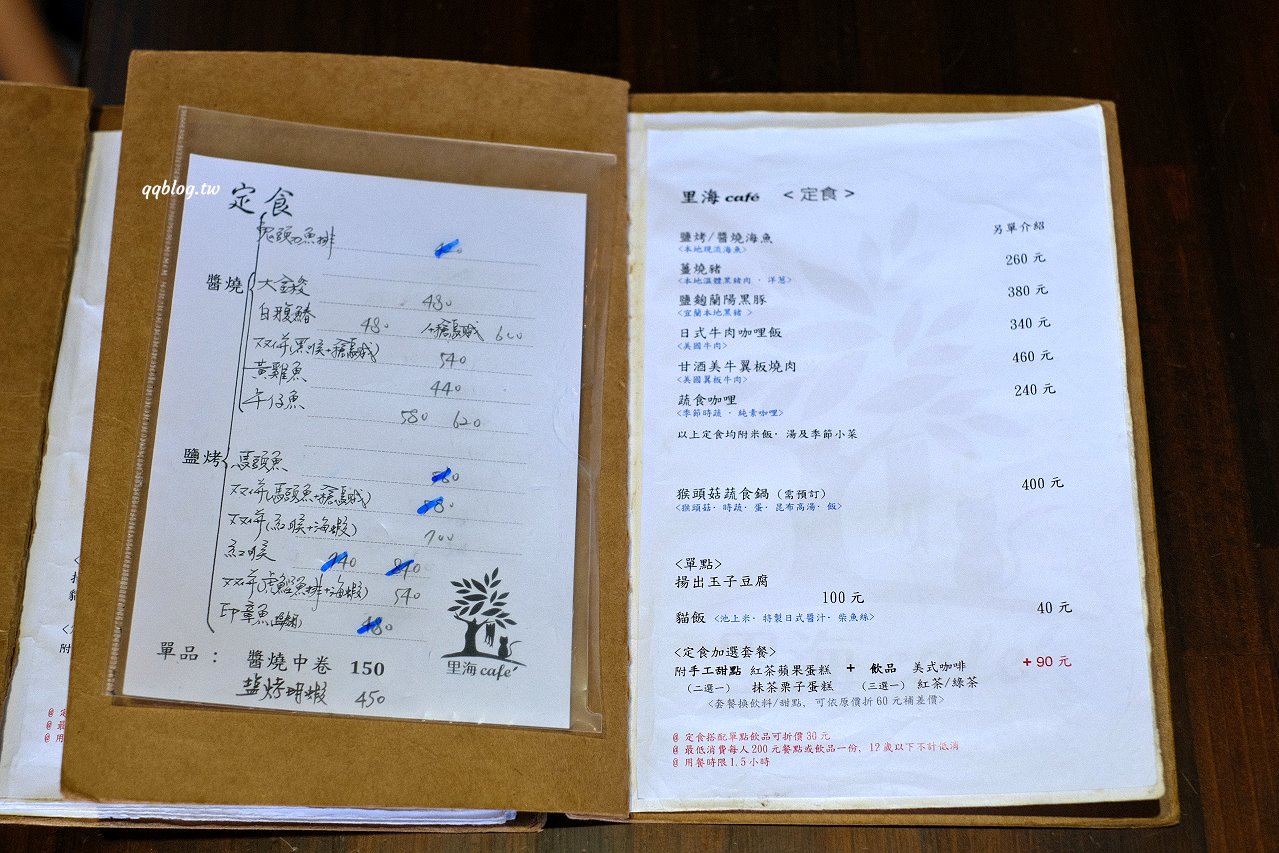 qqblog.tw
定食
鬼頭刀魚排
醬燒
大金鮻
480
白腹鰆 480
600
双併(黑喉+
540
黃雞魚
440
午仔魚
580 620
鹽烤
馬頭魚
双併(馬頭魚+
双併(紅喉+海蝦)
700
紅喉
双併(魚排+海蝦) 540
印章魚
單品： 醬燒中卷 150
塩烤明蝦 450
里海 café
里海 café <定食>
另單介紹
鹽烤/醬燒海魚
<本地現流海魚>
260 元
薑燒豬
<本地溫體黑豬肉．洋蔥>
380 元
鹽麴蘭陽黑豚
<宜蘭本地黑豬>
340 元
日式牛肉咖哩飯
<美國牛肉>
460 元
甘酒美牛翼板燒肉
<美國翼板牛肉>
240 元
蔬食咖哩
<季節時蔬．純素咖哩>
以上定食均附米飯．湯及季節小菜
400 元
猴頭菇蔬食鍋 (需預訂)
<猴頭菇．時蔬．蛋．昆布高湯．飯>
<單點>
揚出玉子豆腐
100 元
40 元
貓飯 <池上米．特製日式醬汁．柴魚絲>
<定食加選套餐>
附手工甜點 紅茶蘋果蛋糕 + 飲品 美式咖啡 + 90 元
(二選一) 抹茶栗子蛋糕 (三選一) 紅茶/綠茶
<套餐換飲料/甜點，可依原價折 60 元補差價>
@ 定食搭配單點飲品可折價 30 元
@ 最低消費每人 200 元餐點或飲品一份，12 歲以下不計低消
@ 用餐時限 1.5 小時